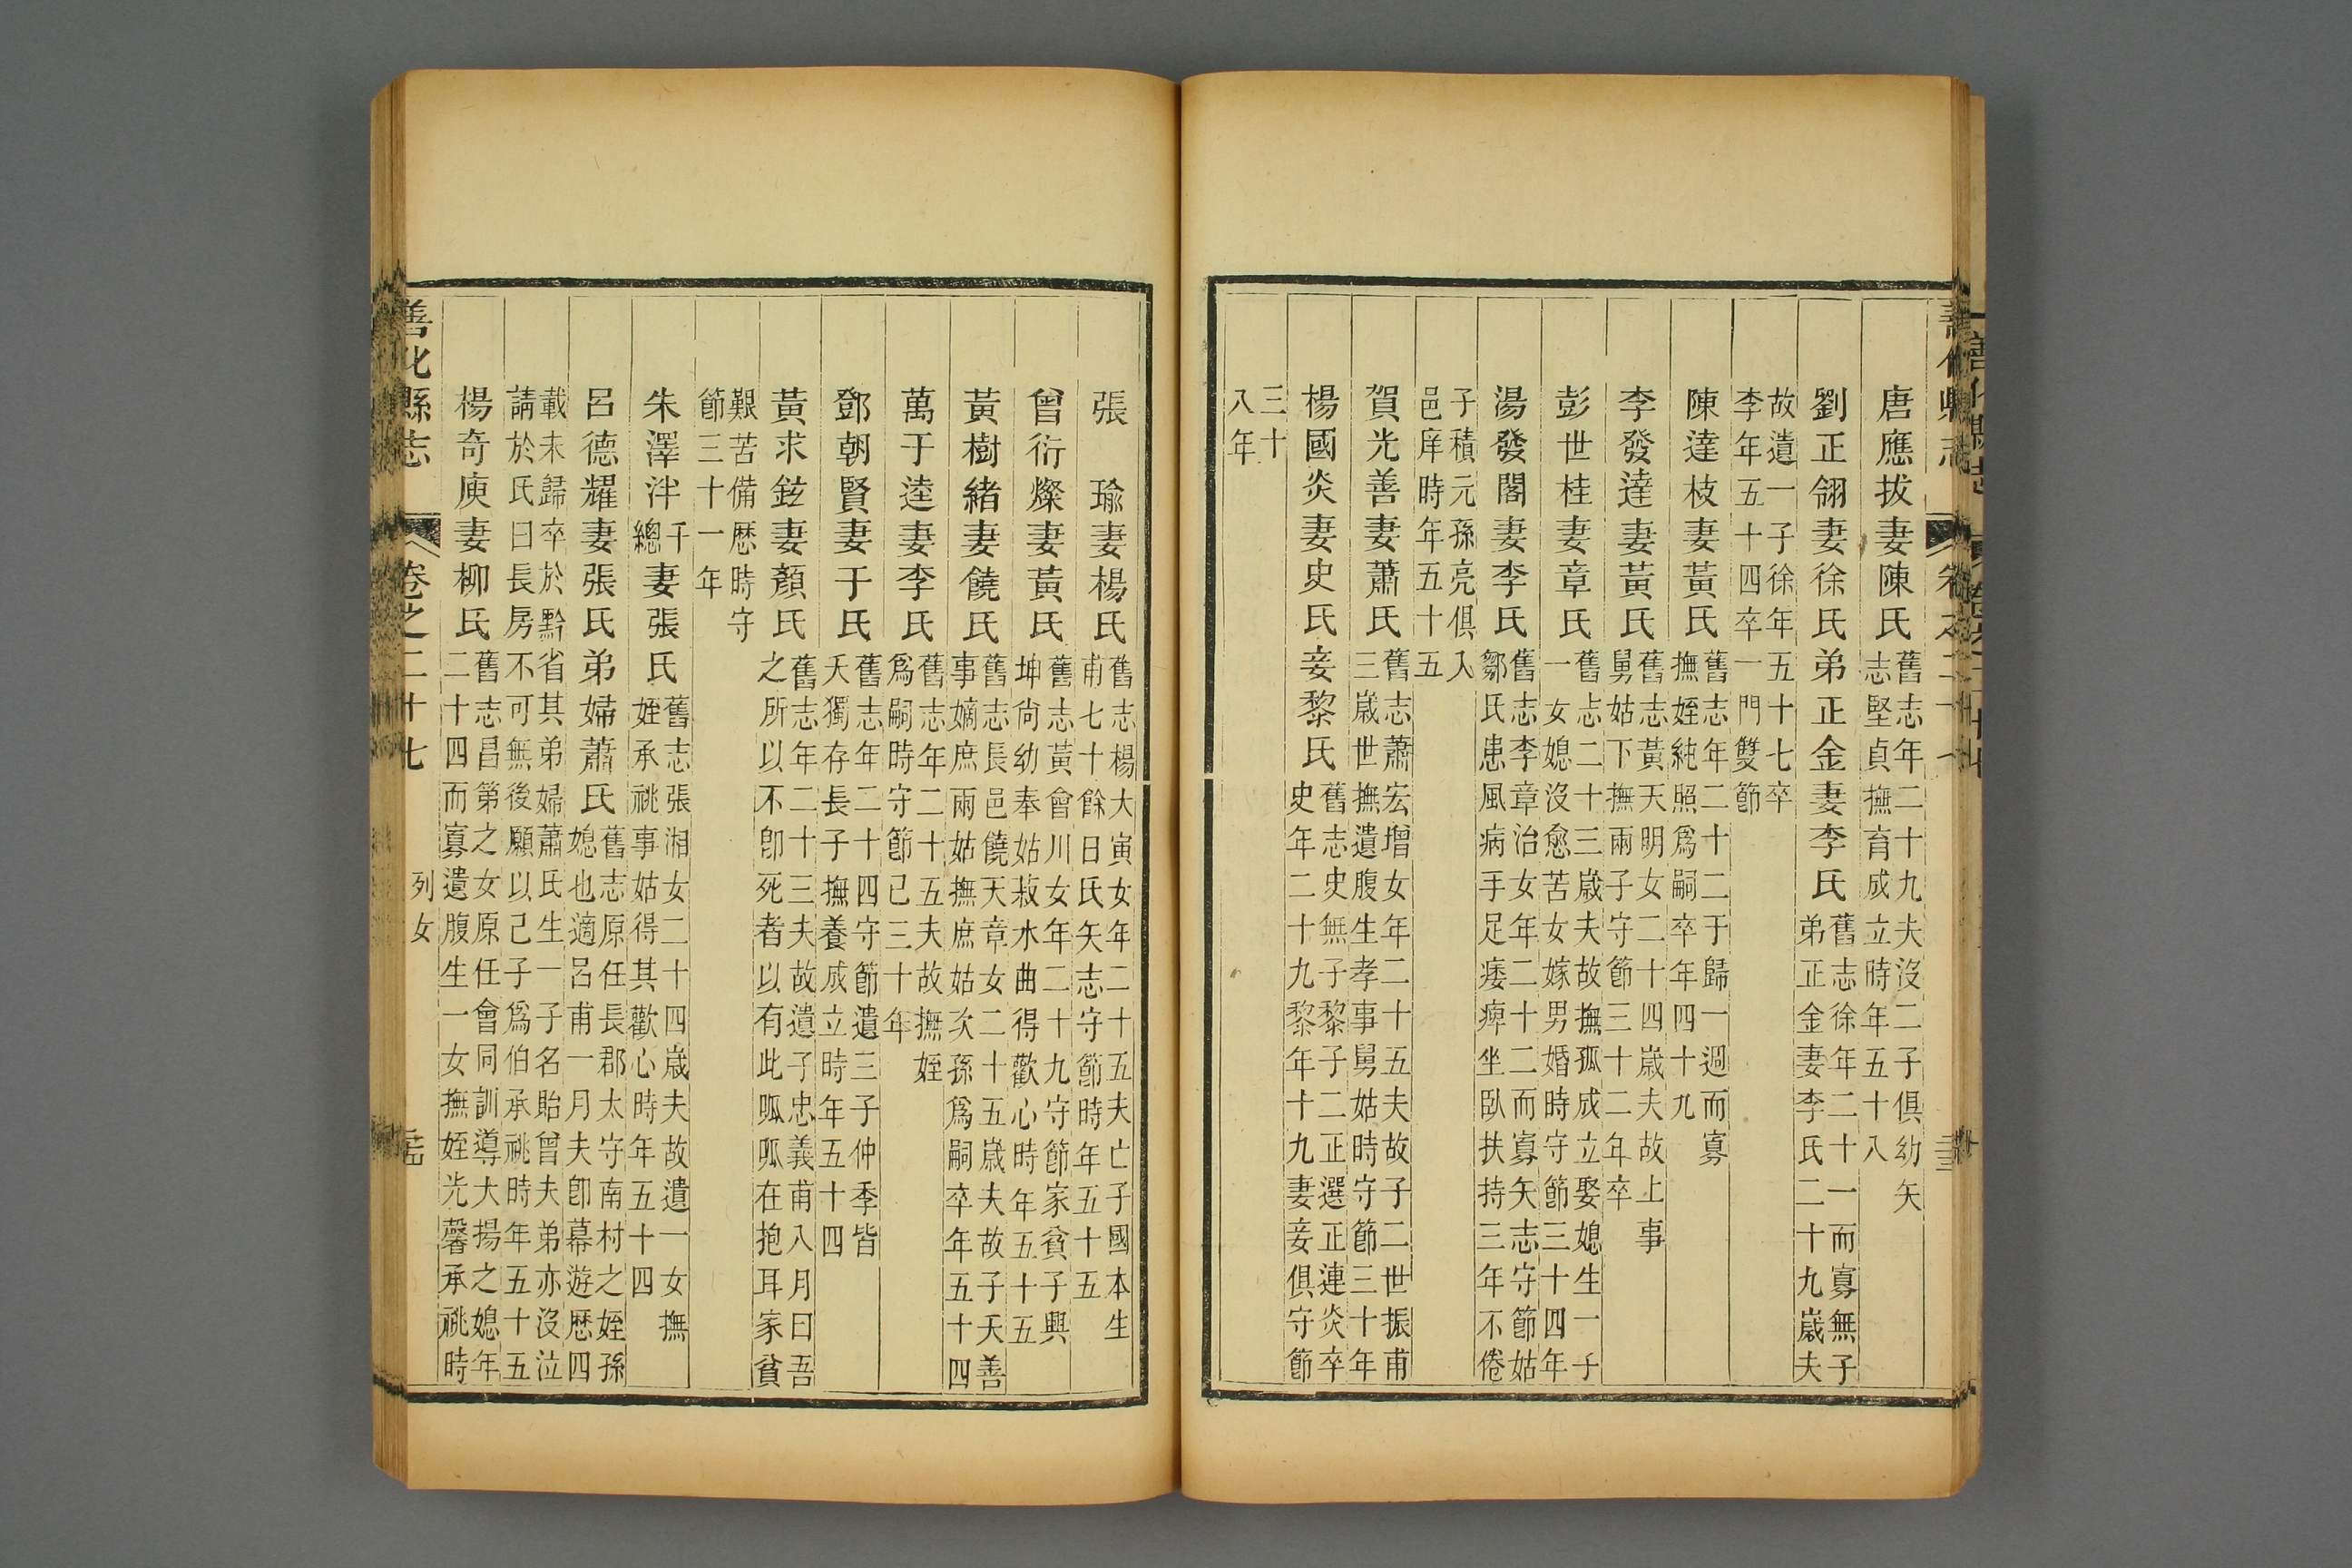 唐應拔妻陳氏
舊志年二十九夫沒二子俱幼矢
志堅貞撫育成立時年五十八
劉正翎妻徐氏弟正金妻李氏
舊志徐年二十一而寡無子
弟正金妻李氏二十九嵗夫
故遺一子徐年五十七卒
李年五十四卒一門雙節
陳達枝妻黃氏
舊志年二十二于歸一週而寡
撫姪純照爲嗣卒年四十九
李發達妻黃氏
舊志黃天明女二十四嵗夫故上事
舅姑下撫兩子守節三十二年卒
彭世桂妻章氏
舊志二十三嵗夫故撫孤成立娶媳生一子
一女媳沒愈苦女嫁男婚時守節三十四年
湯發閣妻李氏
舊志李章治女年二十二而寡矢志守節姑
鄒氏患風病手足痿痺坐臥扶持三年不倦
子積元孫亮俱入
邑庠時年五十五
賀光善妻蕭氏
舊志蕭宏增女年二十五夫故子二世振甫
三嵗世撫遺腹生孝事舅姑時守節三十年
楊國炎妻史氏妾黎氏
舊志史無子黎子二正選正連炎卒
史年二十九黎年十九妻妾俱守節
三十
八年
張瑜妻楊氏
舊志楊大寅女年二十五夫亡子國本生
甫七十餘日氏矢志守節時年五十五
曾衍燦妻黃氏
舊志黃會川女年二十九守節家貧子興
坤尙幼奉姑菽水曲得歡心時年五十五
黃樹緒妻饒氏
舊志長邑饒天章女二十五嵗夫故子天善
事嫡庶兩姑撫庶姑次孫爲嗣卒年五十四
萬于逵妻李氏
舊志年二十五夫故撫姪
爲嗣時守節已三十年
鄧朝賢妻于氏
舊志年二十四守節遺三子仲季皆
夭獨存長子撫養成立時年五十四
黃求鉉妻顏氏
舊志年二十三夫故遺子忠義甫八月曰吾
之所以不卽死者以有此呱呱在抱耳家貧
艱苦備歷時守
節三十一年
朱澤泮千總妻張氏
舊志張湘女二十四嵗夫故遺一女撫
姪承祧事姑得其歡心時年五十四
呂德耀妻張氏弟婦蕭氏
舊志原任長郡太守南村之姪孫
媳也適呂甫一月夫卽幕遊歷四
載未歸卒於黔省其弟婦蕭氏生一子名貽曾夫弟亦沒泣
請於氏曰長房不可無後願以己子爲伯承祧時年五十五
楊奇庾妻柳氏
舊志昌第之女原任會同訓導大揚之媳年
二十四而寡遺腹生一女撫姪光馨承祧時
善化縣志 卷之二十七 列女